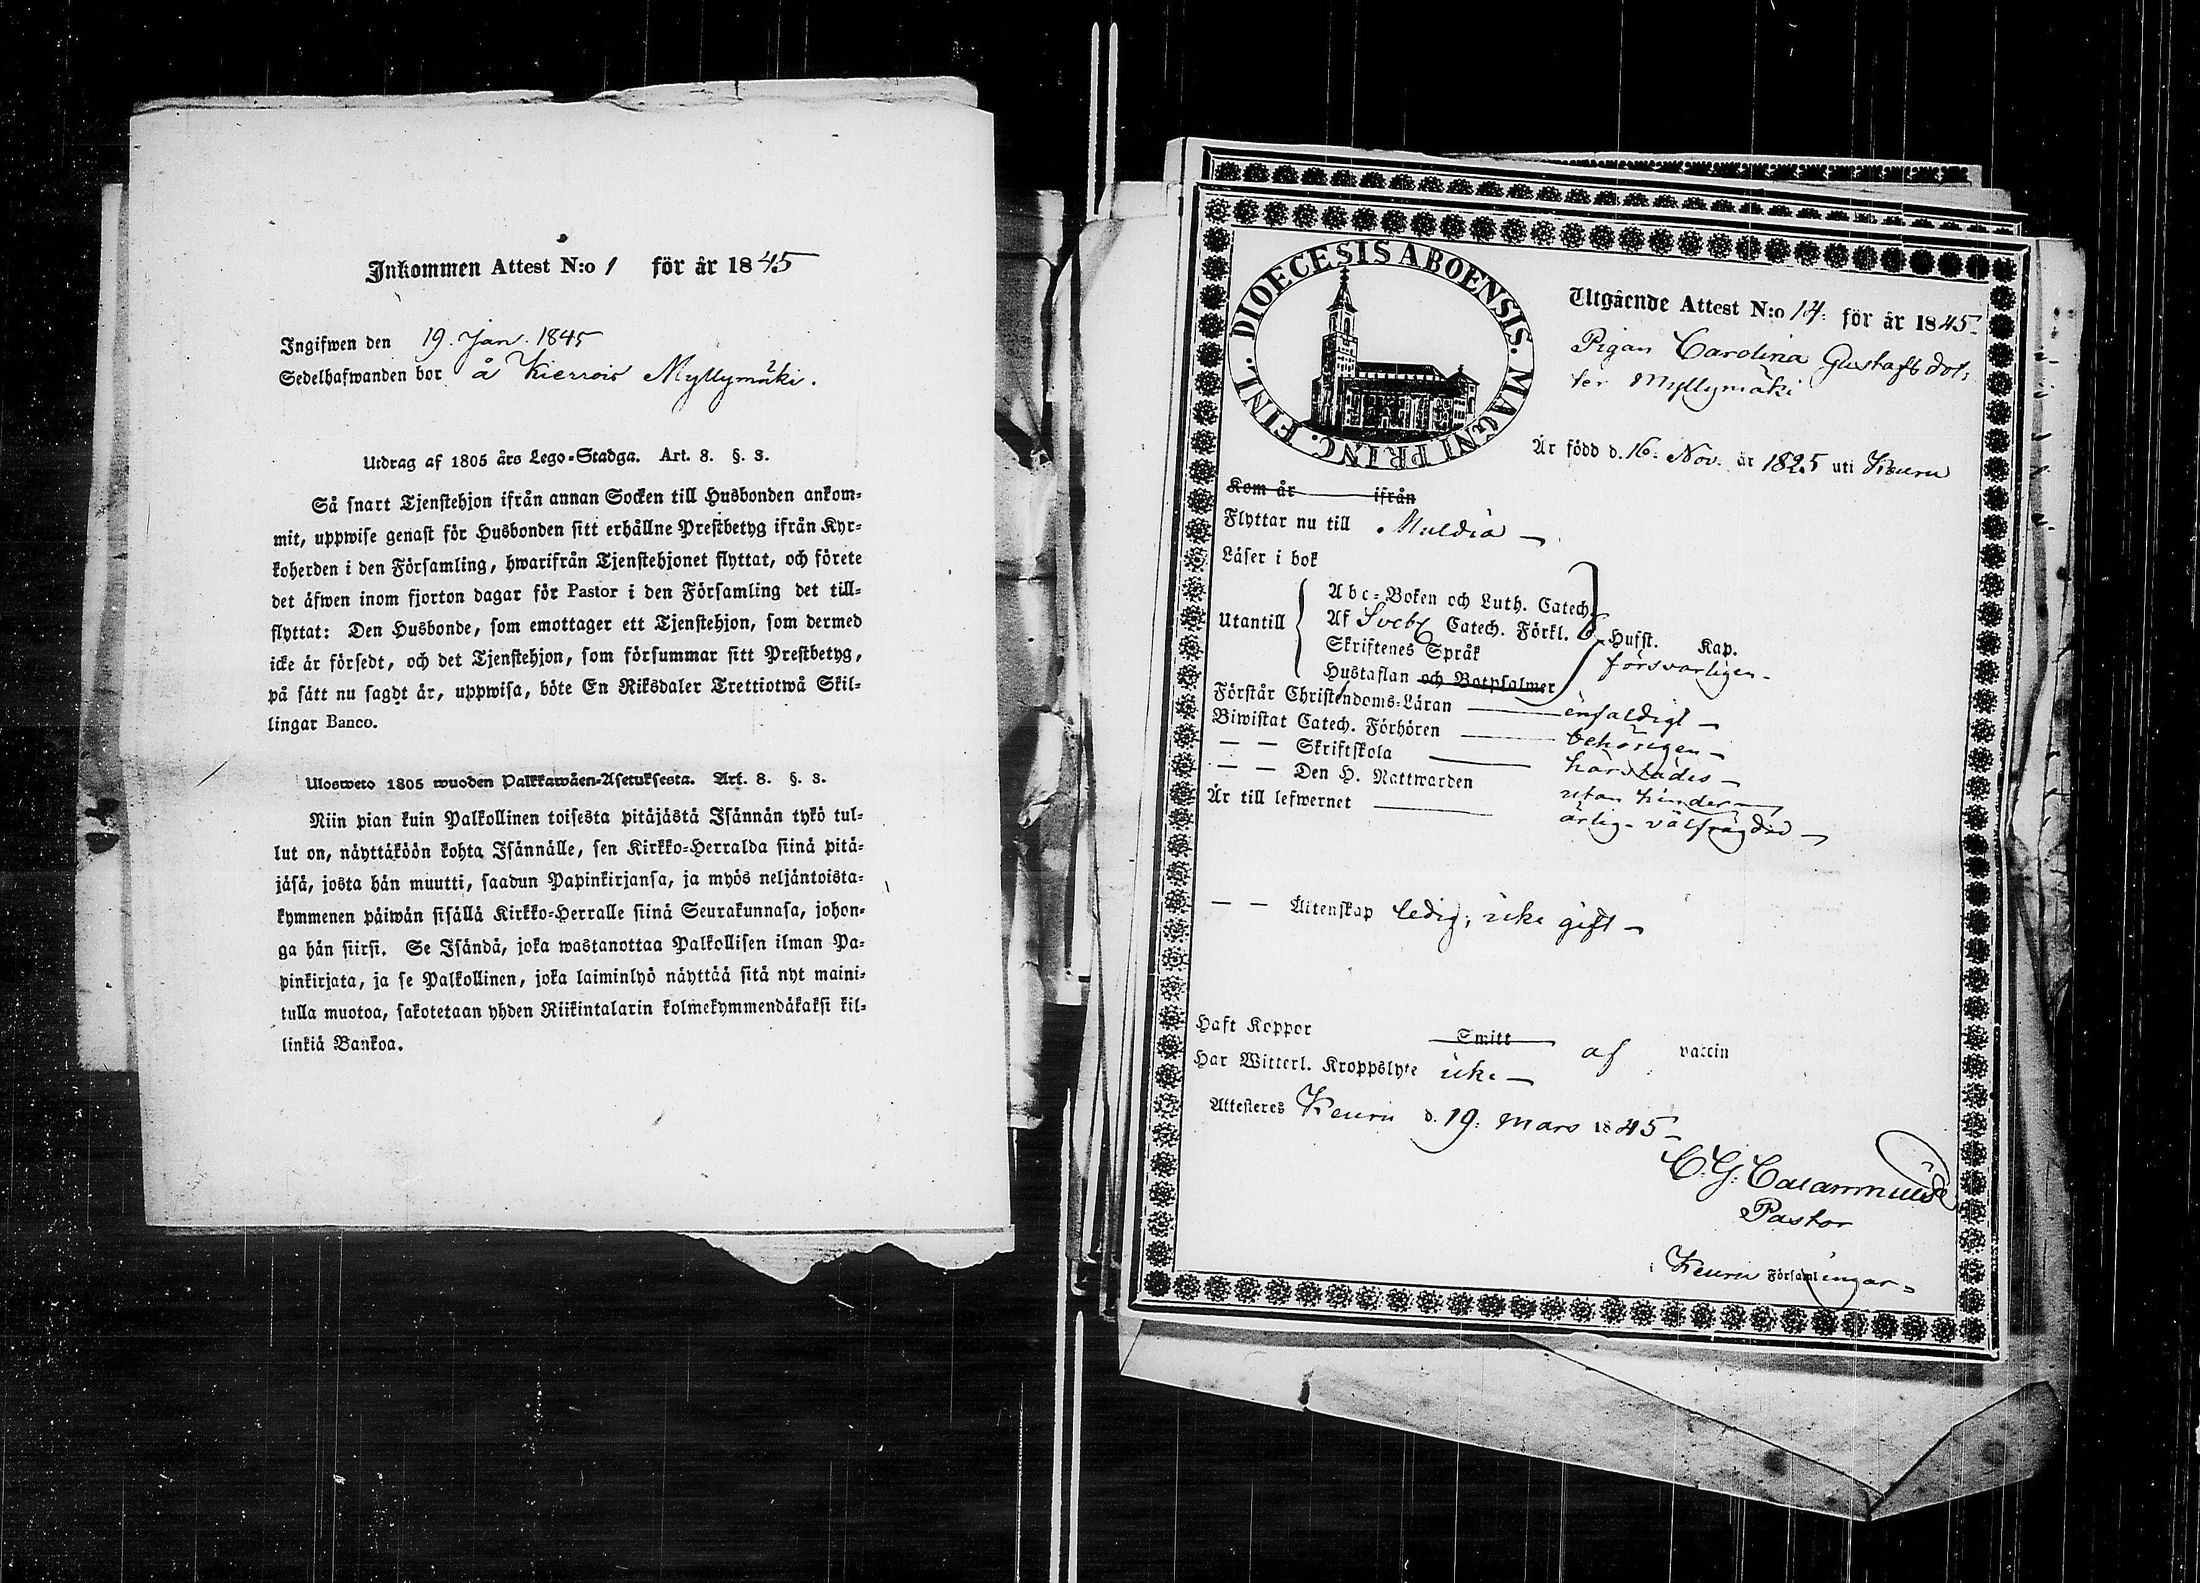 Inkommen Attest N:o 1 för år 1845
Ingifwen den 19. Jan. 1845
Sedelhafwanden bor å Kierrois Myllymäki.
Utdrag af 1805 års Lego-Stadga. Art. 8. §. 3.
Så snart Tjenstehjon ifrån annan Socken till Husbonden ankom-
mit, uppwise genast för Husbonden sitt erhållne Prestbetyg ifrån Kyr-
koherden i den Församling, hwarifrån Tjenstehjonet flyttat, och förete
det äfwen inom fjorton dagar för Pastor i den Församling det till-
flyttat: Den Husbonde, som emottager ett Tjenstehjon, som dermed
icke är försedt, och det Tjenstehjon, som försummar sitt Prestbetyg,
på sätt nu sagdt är, uppwisa, böte En Riksdaler Trettiotwå Skil-
lingar Banco.
Ulosweto 1805 wuoden Palkkawäen-Asetuksesta. Art. 8. §. 3.
Niin pian kuin Palkollinen toisesta pitäjästä Isännän tykö tul-
lut on, näyttäköön kohta Isännälle, sen Kirkko-Herralda siinä pitä-
jäsä, josta hän muutti, saadun Papinkirjansa, ja myös neljäntoista-
kymmenen päiwän sisällä Kirkko-Herralle siinä Seurakunnasa, johon-
ga hän siirsi. Se Isändä, joka wastanottaa Palkollisen ilman Pa-
pinkirjata, ja se Palkollinen, joka laiminlyö näyttää sitä nyt maini-
tulla muotoa, sakotetaan yhden Riikintalarin kolmekymmendäkaksi kil-
linkiä Bankoa.
DIOECESIS ABOENSIS. MAGNI PRINC. FINL.
Utgående Attest N:o 14. för år 1845
Pigan Carolina Gustafsdot-
ter Myllymäki
Är född d. 16. Nov. år 1825 uti Keuru
Kom år ifrån
Flyttar nu till Muldia
Läser i bok
Utantill
Abc-Boken och Luth. Catech.
Af Svebg Catech. Förkl.
Hufst. Kap.
Skriftenes Språk
försvarligen
Hustaflan och Botpsalmer
Förstår Christendoms-Läran enfaldigt
Biwistat Catech. Förhören behörigen
— — Skriftskola härstädes
— — Den H. Nattwarden utan hinder
Är till lefwernet ärlig, välfrägdad
— — Äktenskap ledig, icke gift
Haft Koppor Smitt af vaccin
Har Witterl. Kroppslyte icke
Attesteres Keuru d. 19. Mars 1845
Pastor
i Keuru Församlingar